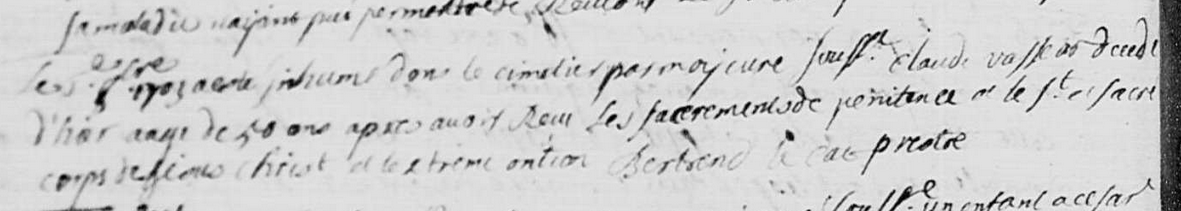 sa maladie nayant peu permettre
Le 5.e 1703 a este inhumé dans le cimetier par moy curé souss.t Claude vasseor decedé
d'hier aagé de 50 ans apres avoir Receu Les sacrements de penitence et le s.t et sacré
corps de jesus Christ et lextreme onction Bertrend prestre
souss.e un enfant a cesar